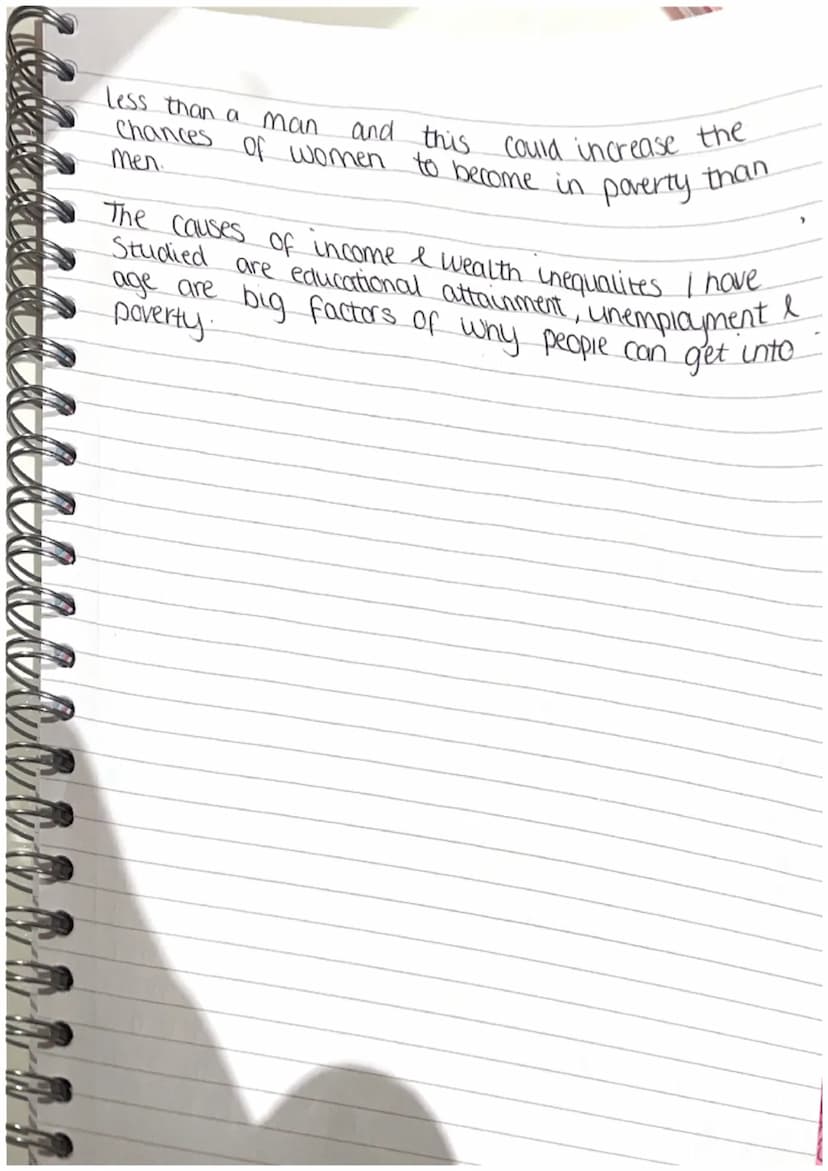 less than a man and this could increase the
chances of women to become in poverty than
men.
The causes of income & wealth inequalites I have
Studied are educational attainment, unemployment &
age are big factors of why people can get into
poverty.